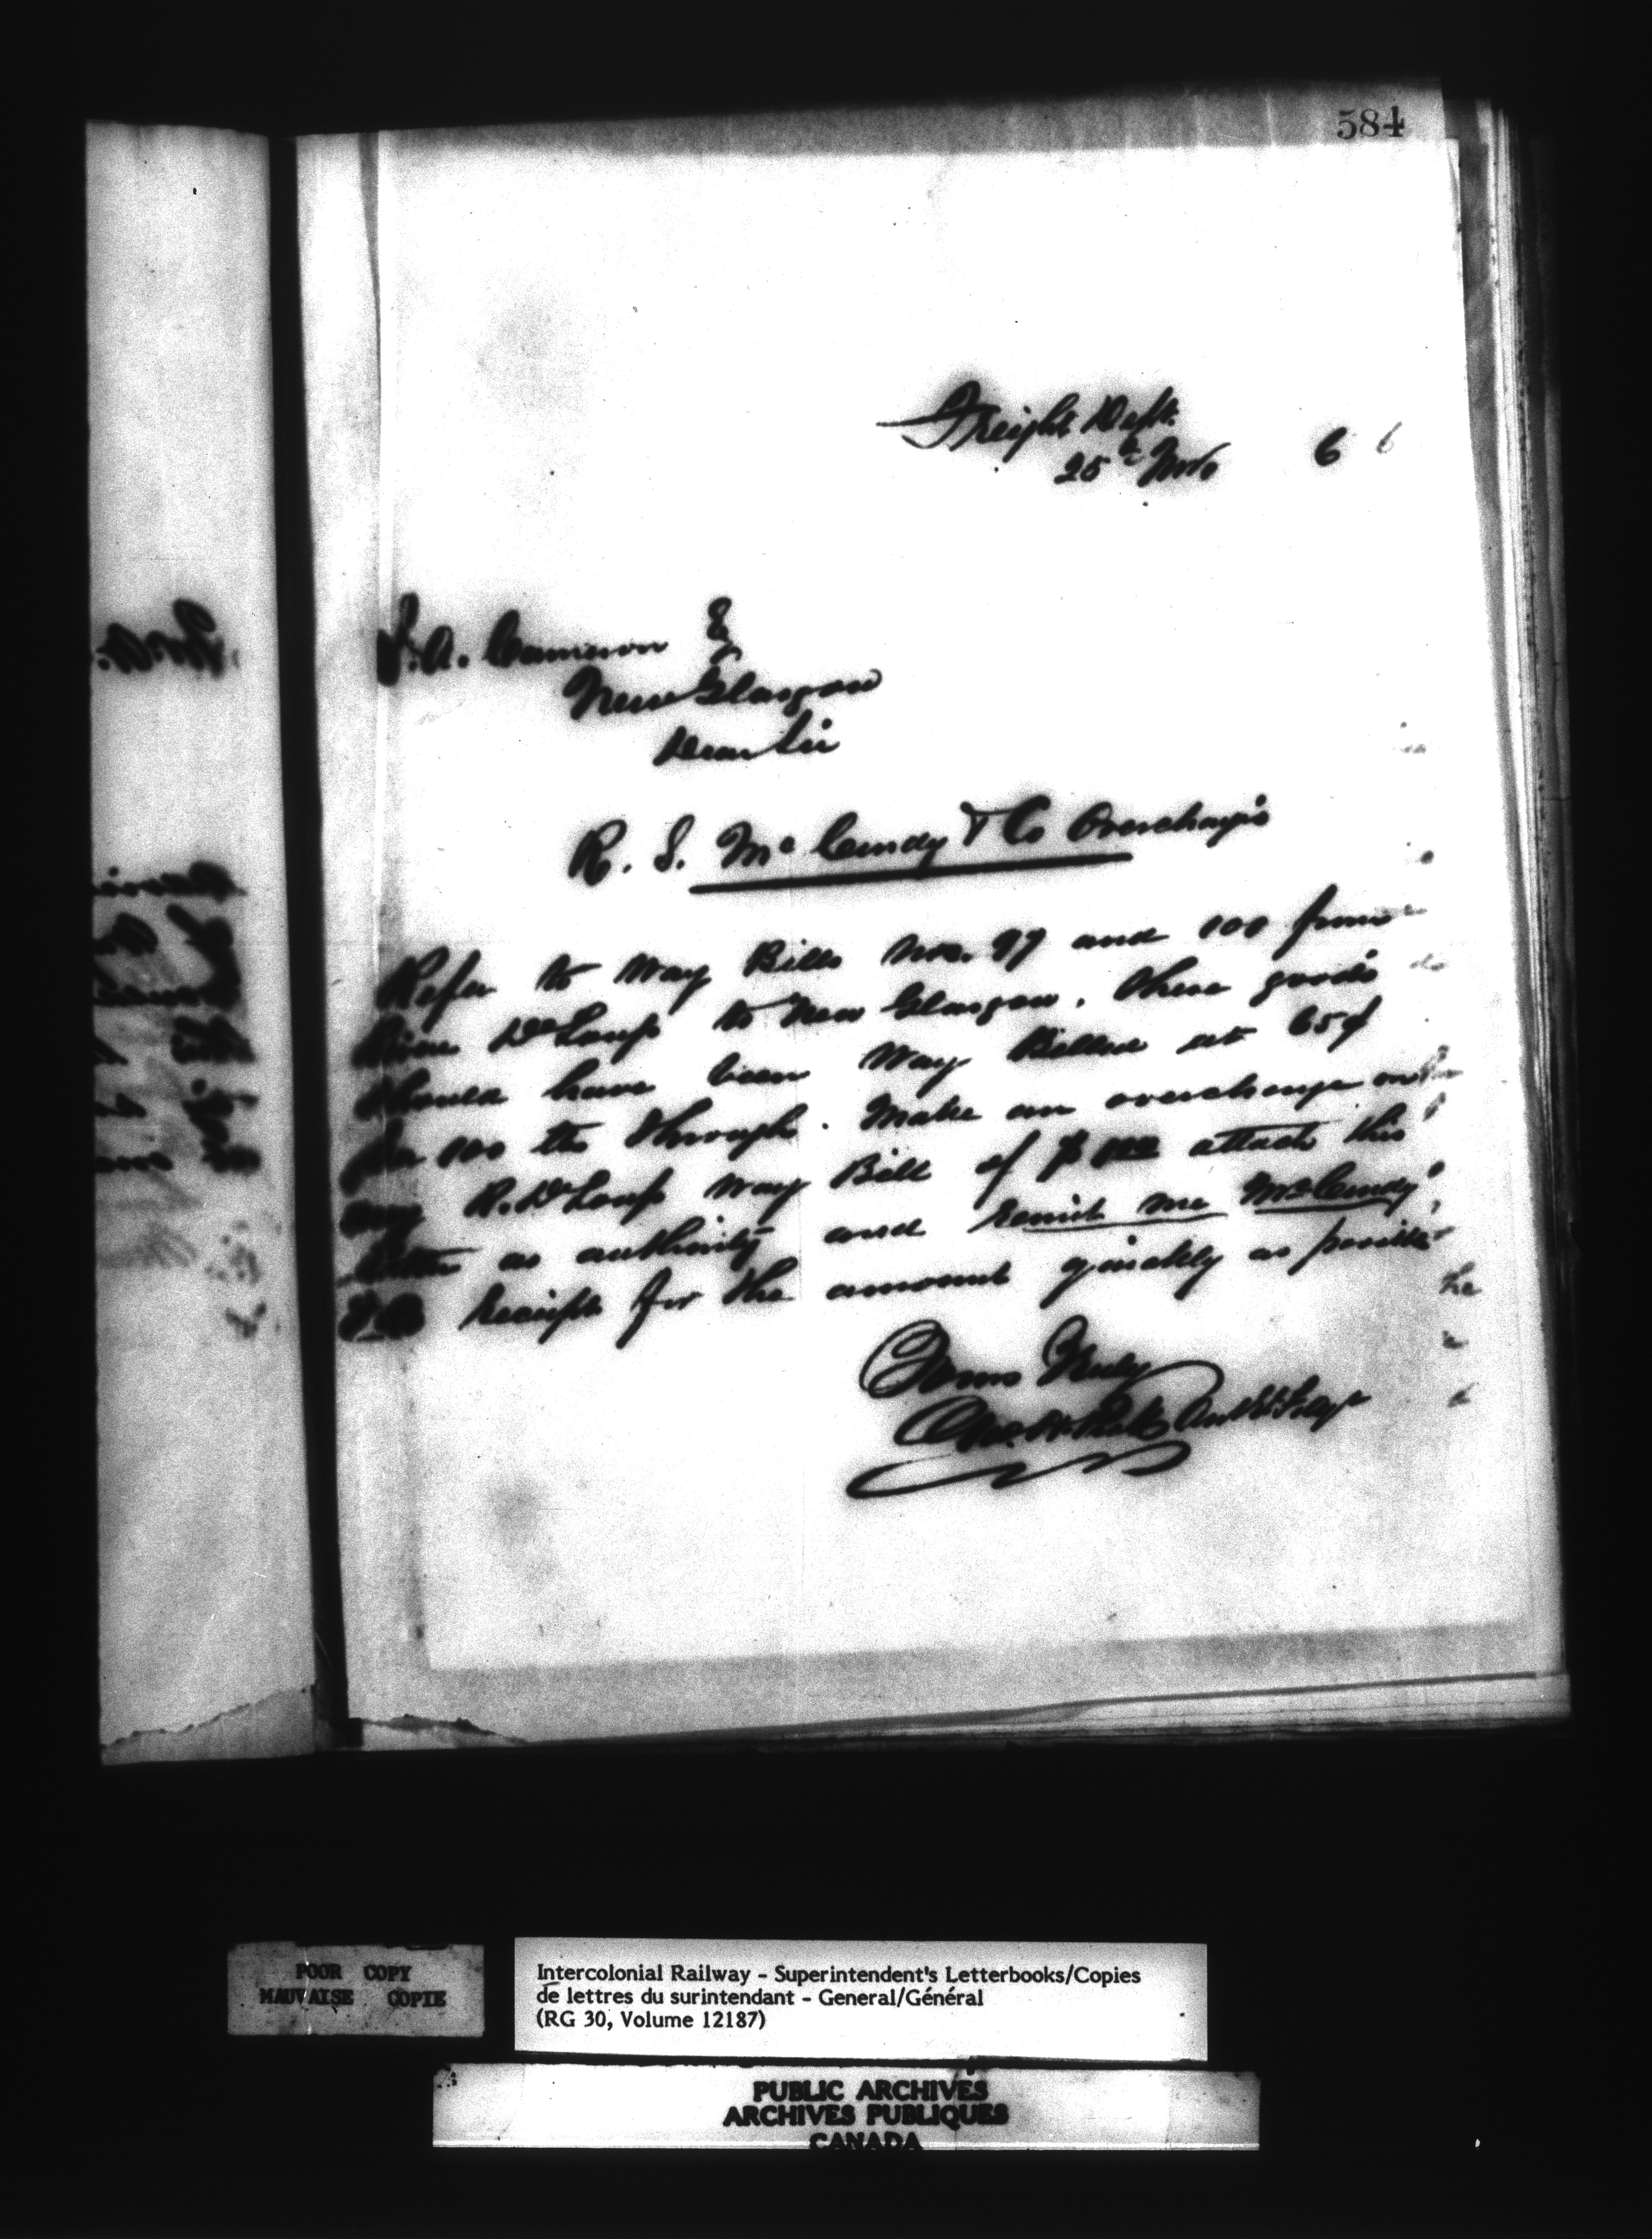 584
Freight Dept.
25th Nov 6 6
J. A. Cameron Esq
New Glasgow
Dear Sir
R. S. McCurdy & Co Overcharges
Refer to Way Bills Nos. 97 and 101 from
River DeLoup to New Glasgow. These goods
should have been Way Billed at 65¢
per 100 lbs through. Make an overcharge on
any R. DeLoup Way Bill of attach this
letter as authority and remit me McCurdy
& Co receipt for the amount quickly as possible
Yours Truly
POOR COPY
MAUVAISE COPIE
Intercolonial Railway - Superintendent's Letterbooks/Copies
de lettres du surintendant - General/Général
(RG 30, Volume 12187)
PUBLIC ARCHIVES
ARCHIVES PUBLIQUES
CANADA